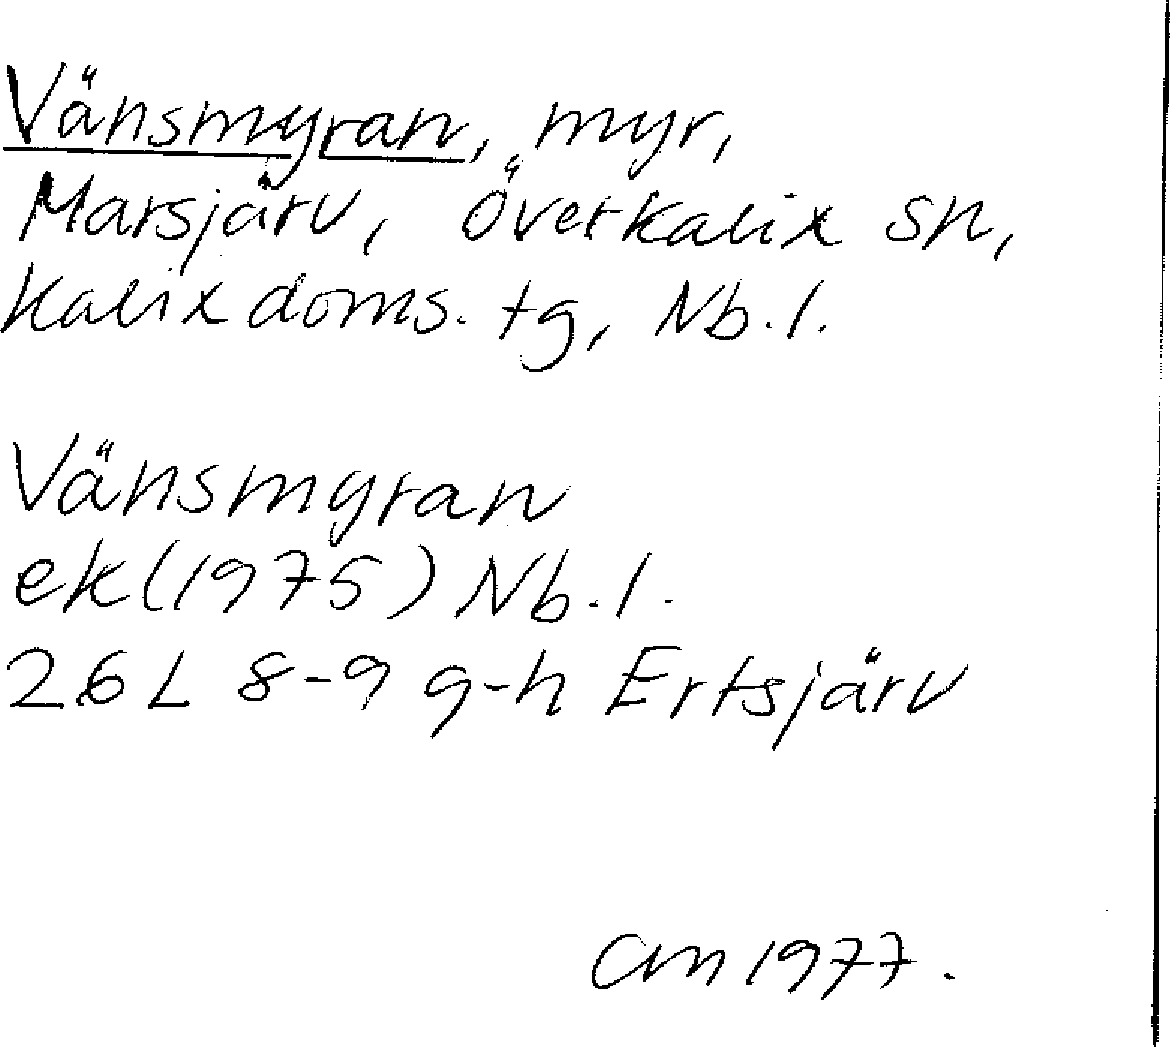 Vänsmyran, myr,
Marsjärv, Överkalix sn,
Kalix doms. tg, Nb. l.
Vänsmyran
ek (1975) Nb. l.
26 L 8-9 g-h Ertsjärv
CM 1977.